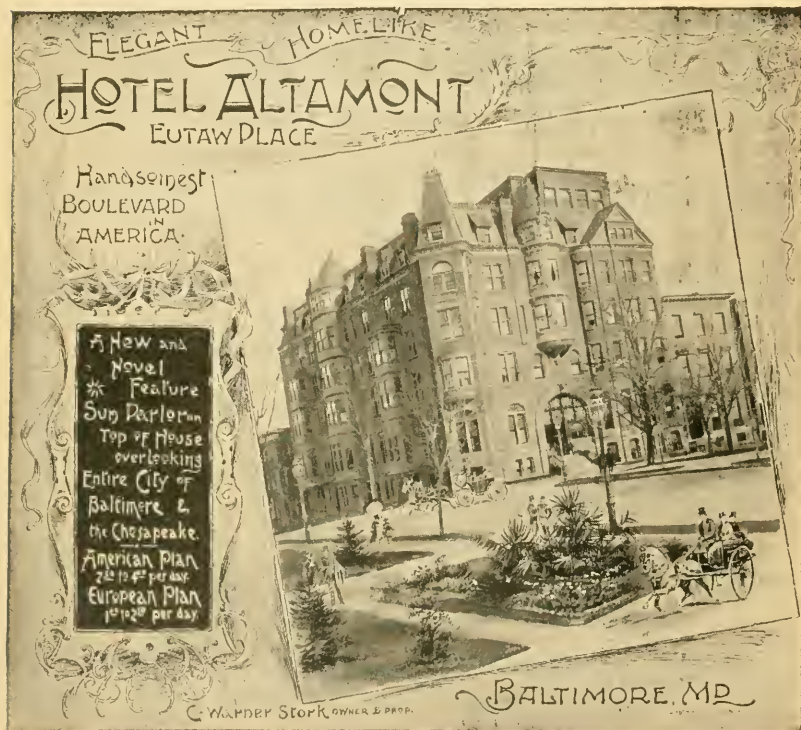 ELEGANT HOMELIKE
HOTEL ALTAMONT
EUTAW PLACE
Handsomest
BOULEVARD
IN
AMERICA.
A New and
Novel
Feature
Sun Parlor on
Top of House
overlooking
Entire City of
Baltimore &
the Chesapeake.
American Plan
to per day.
European Plan
to per day.
BALTIMORE, MD.
C. Warner Stork OWNER & PROP.